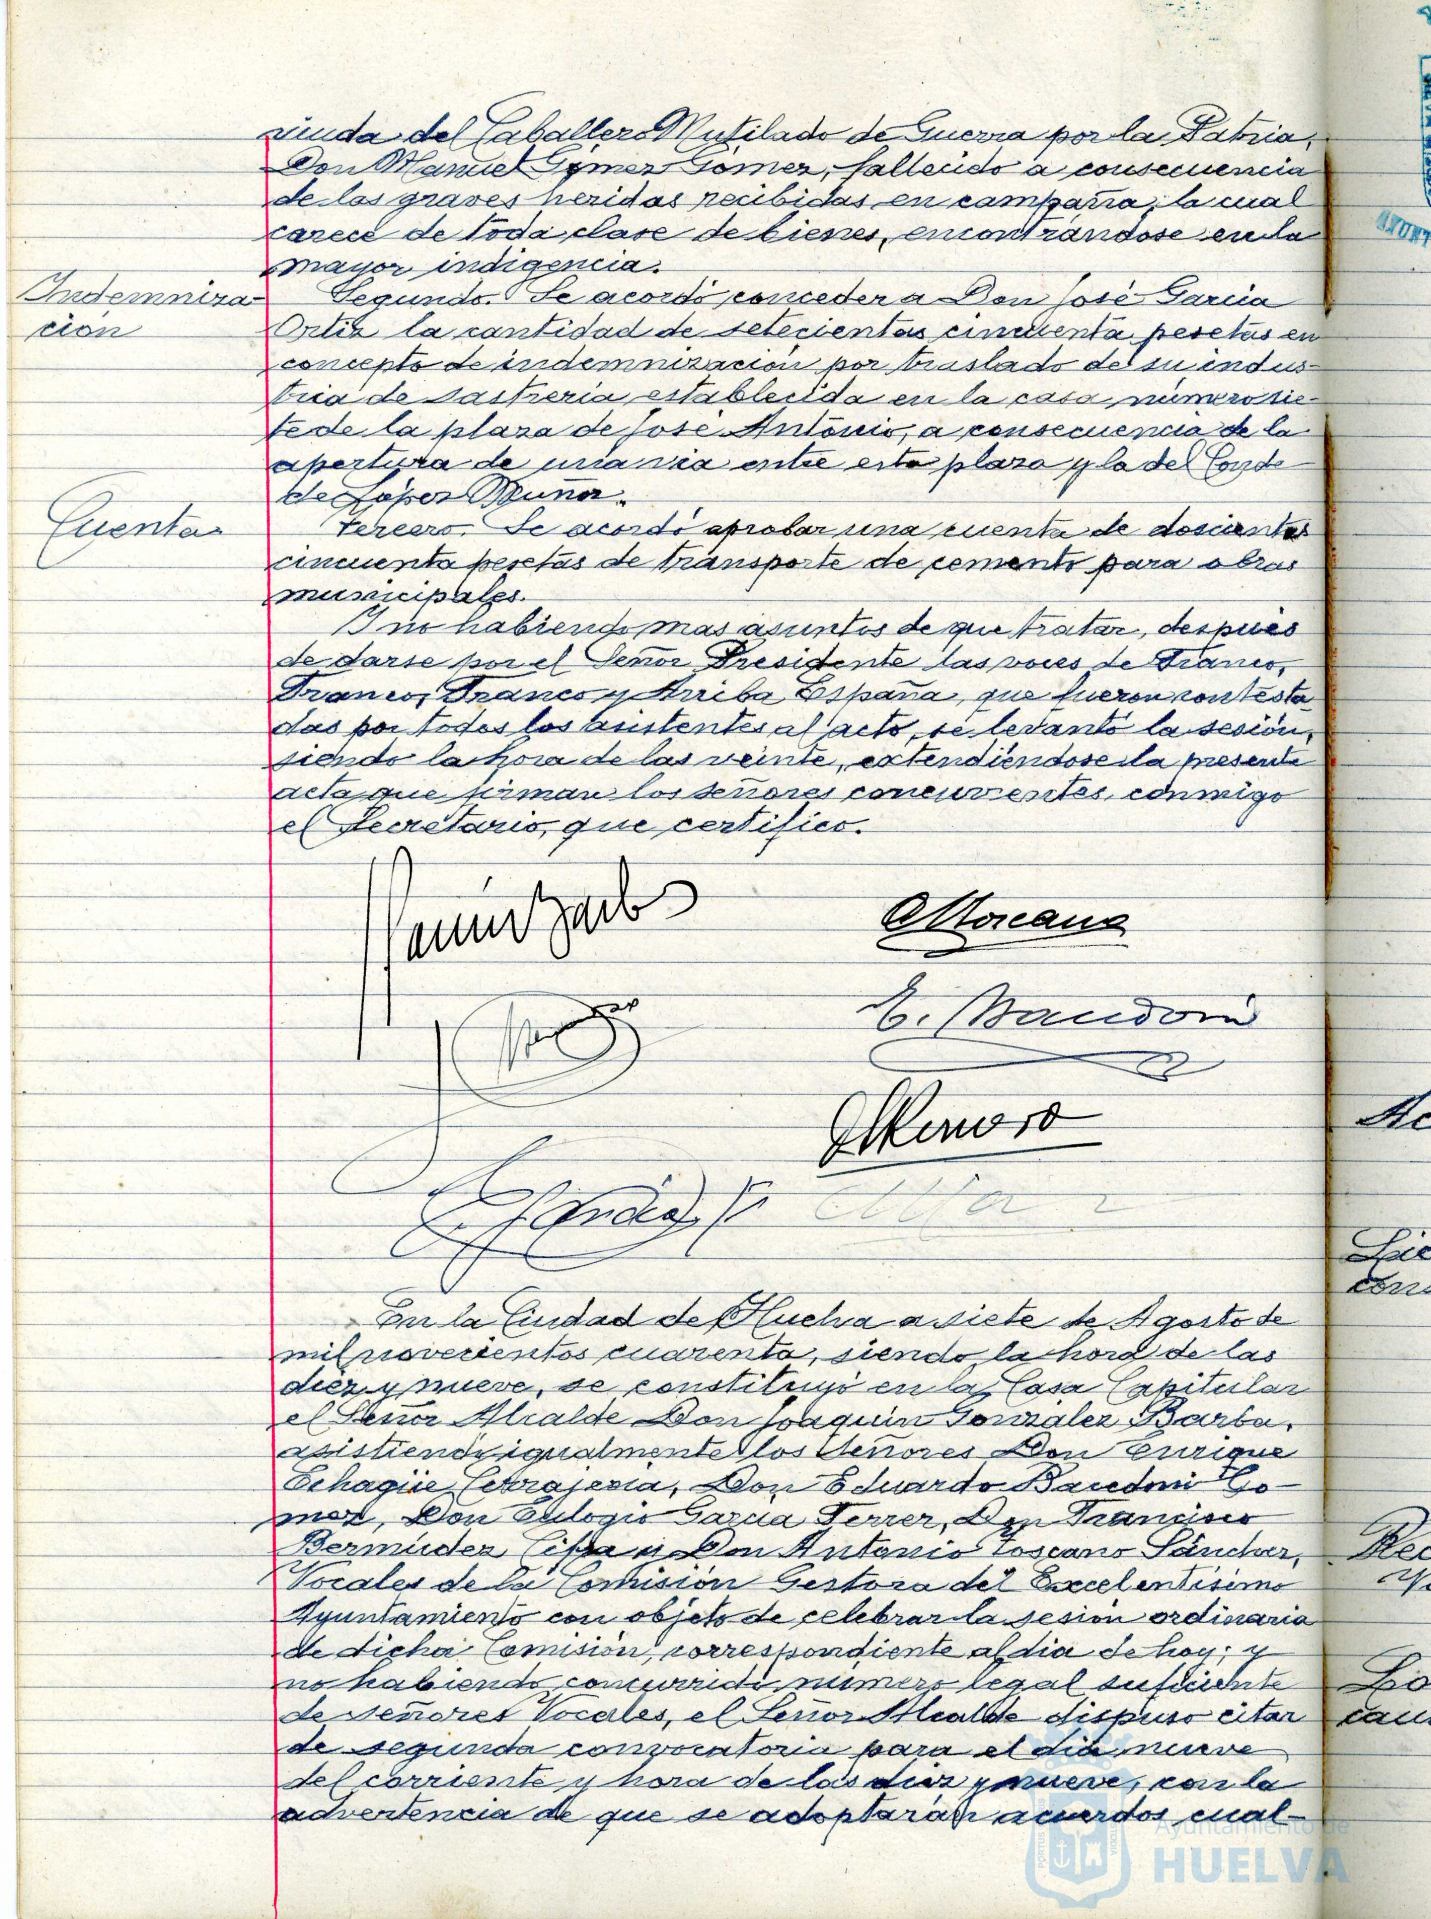 viuda del Caballero Mutilado de Guerra por la Patria,
Don Manuel Gómez Gómez, fallecido a consecuencia
de las graves heridas recibidas en campaña, la cual
carece de toda clase de bienes, encontrándose en la
mayor indigencia.
Indemniza-
ción
Segundo. Se acordó conceder a Don José García
Ortiz la cantidad de setecientas cincuenta pesetas en
concepto de indemnización por traslado de su indus-
tria de sastrería establecida en la casa número sie-
te de la plaza de José Antonio, a consecuencia de la
apertura de una via entre esta plaza y la del Conde
de López Muñoz.
Cuentas
Tercero. Se acordó aprobar una cuenta de doscientas
cincuenta pesetas de transporte de cemento para obras
municipales.
Y no habiendo mas asuntos de que tratar, después
de darse por el Señor Presidente las voces de Franco,
Franco, Franco y Arriba España, que fueron contesta
das por todos los asistentes al acto, se levantó la sesión,
siendo la hora de las veinte, extendiéndose la presente
acta que firman los señores concurrentes, conmigo
el Secretario, que certifico.
E. Bandoni
En la Ciudad de Huelva a siete de Agosto de
mil novecientos cuarenta, siendo la hora de las
diez y nueve, se constituyó en la Casa Capitular
el Señor Alcalde Don Joaquín González Barba,
asistiendo igualmente los señores Don Enrique
Echagüe Cerrajería, Don Eduardo Bandoni Gó-
mez, Don Eulogio García Ferrer, Don Francisco
Bermúdez y Don Antonio Toscano Sánchez,
Vocales de la Comisión Gestora del Excelentísimo
Ayuntamiento con objeto de celebrar la sesión ordinaria
de dicha Comisión, correspondiente al dia de hoy; y
no habiendo concurrido número legal suficiente
de señores Vocales, el Señor Alcalde dispuso citar
de segunda convocatoria para el dia nueve
del corriente y hora de las diez y nueve, con la
advertencia de que se adoptarán acuerdos cual-
Ayuntamiento de
HUELVA